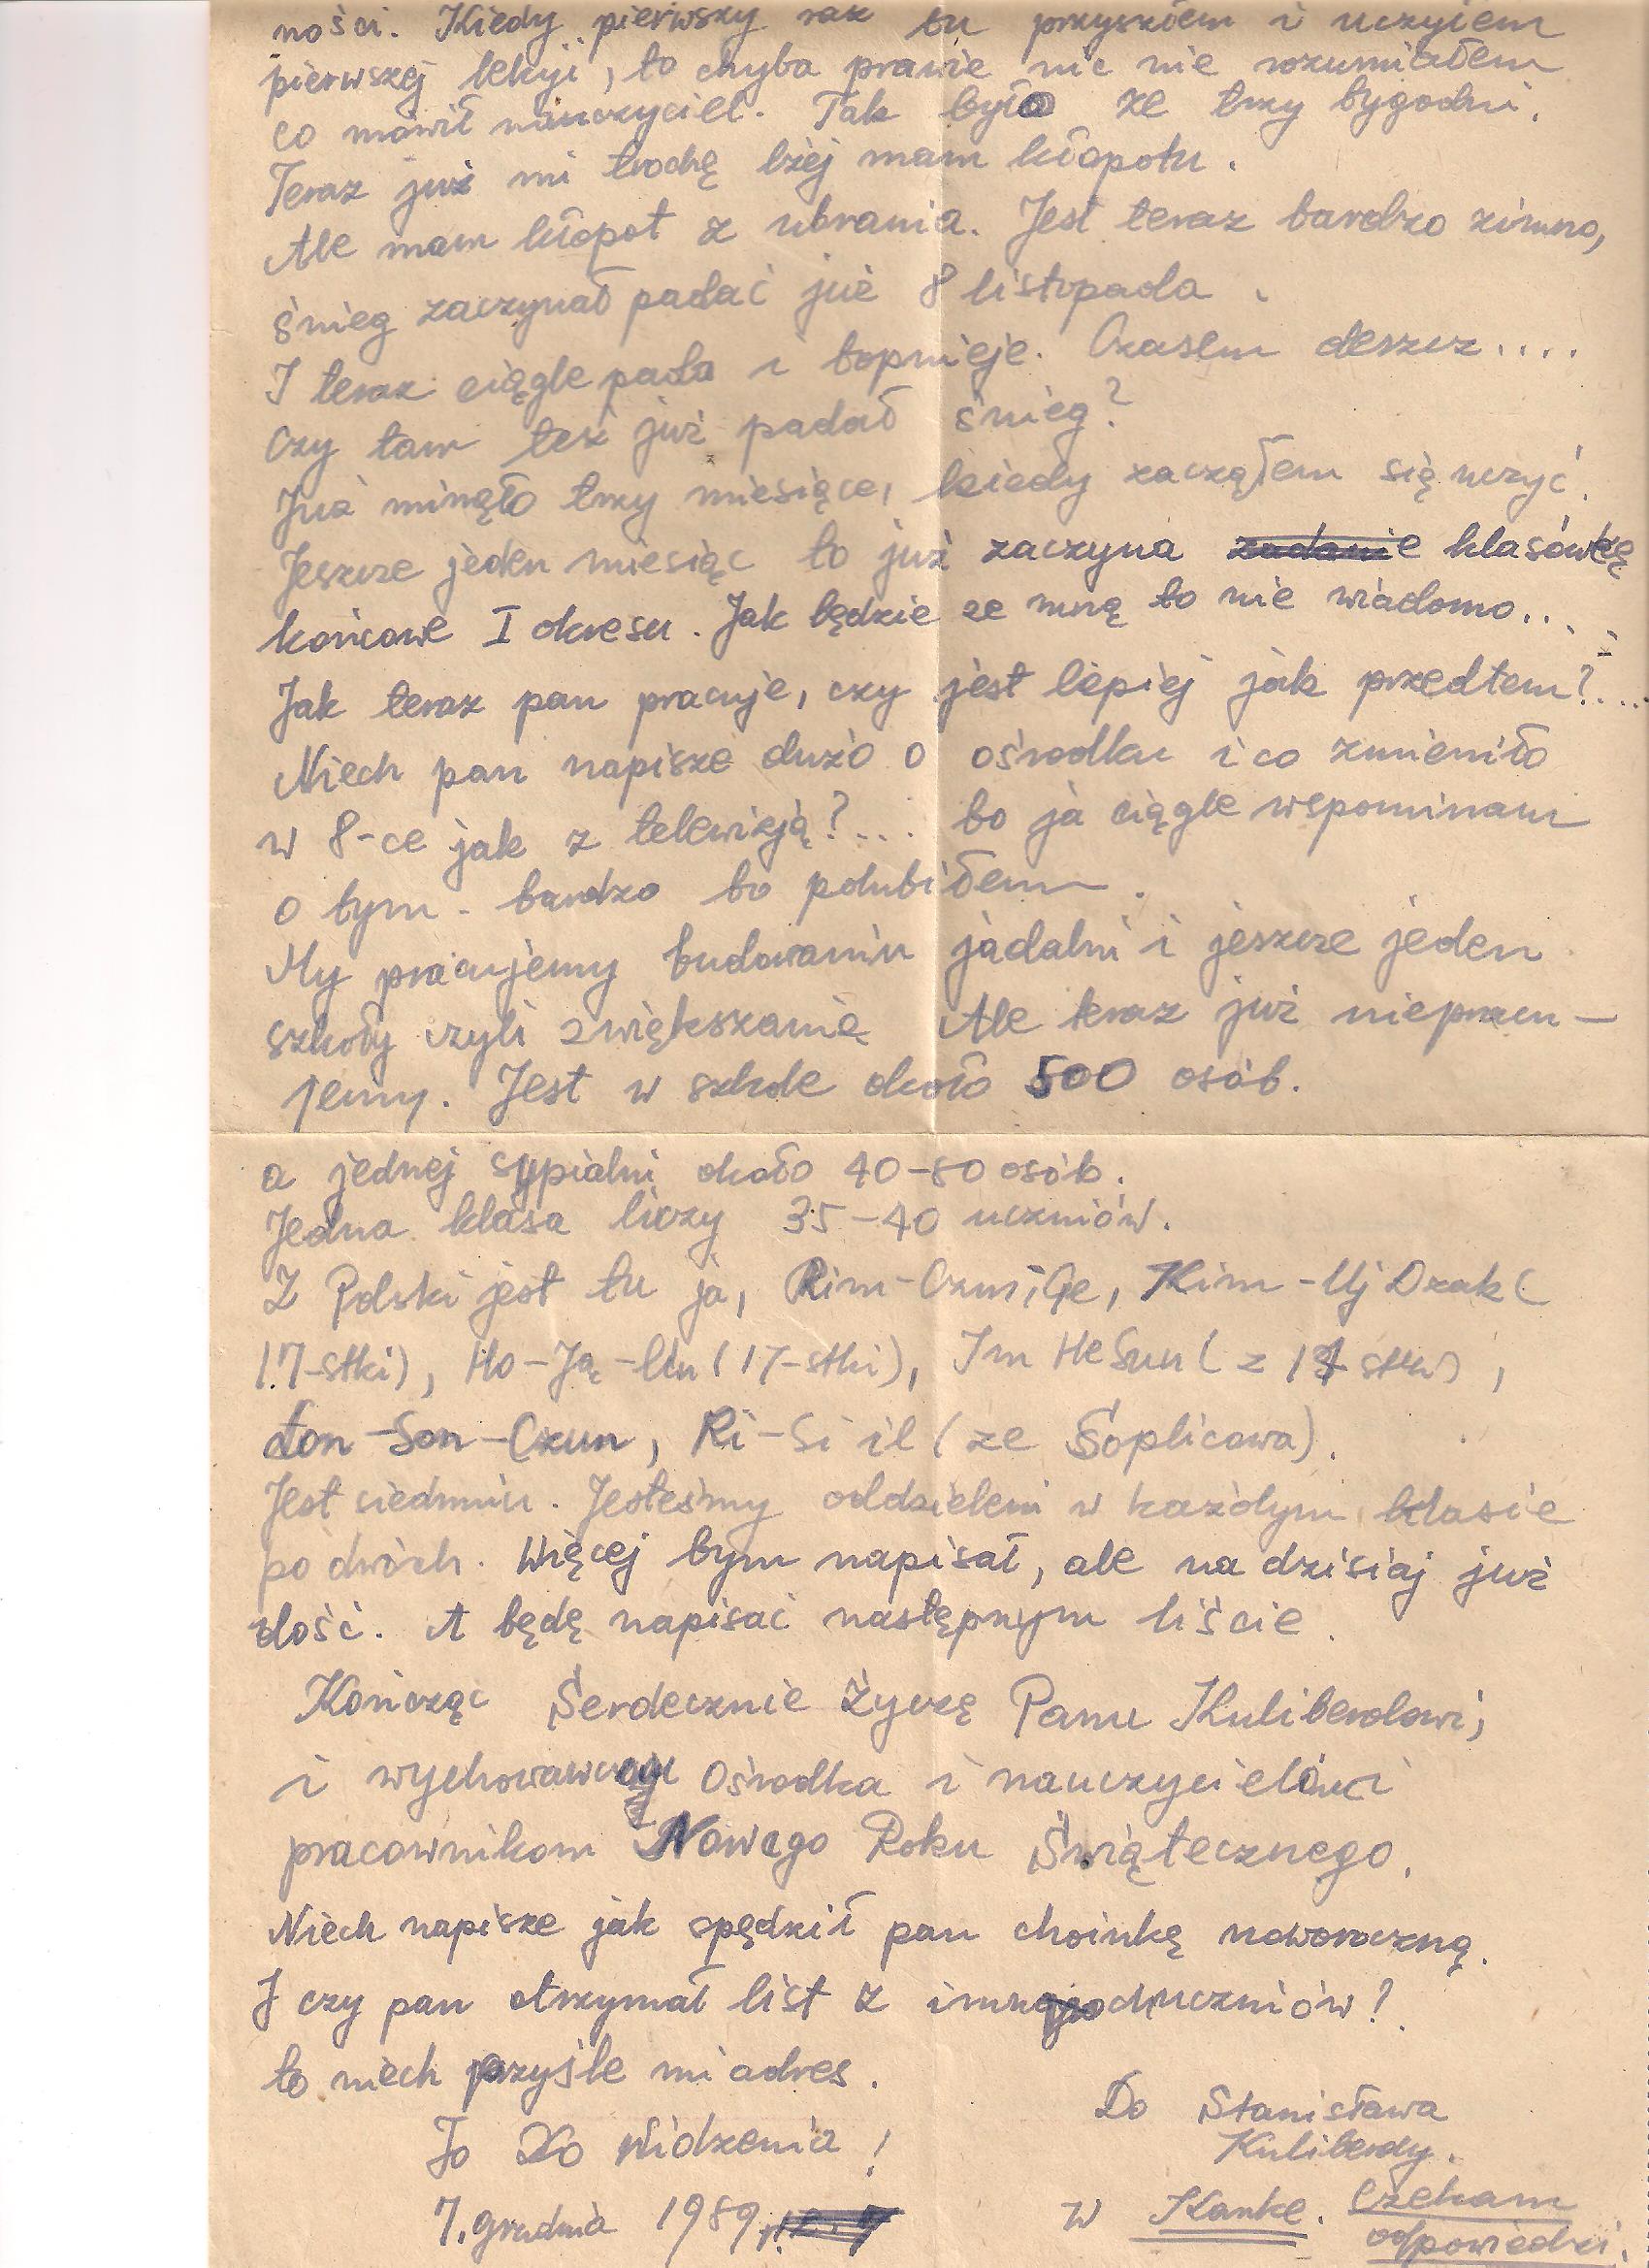 ności. Kiedy pierwszy raz tu przyszłem i uczyłem
pierwszej lekyji, to chyba prawie nic nie rozumiałem
co mówił nauczyciel. Tak było ze trzy tygodni.
Teraz już mi trochę lżej mam kłopotu.
Ale mam kłopot z ubrania. Jest teraz bardzo zimno,
śnieg zaczynał padać już 8 listopada.
I teraz ciągle pada i topnieje. Czasem deszcz....
Czy tam też już padał śnieg?
Już minęło trzy miesiące, kiedy zacząłem się uczyć.
Jeszcze jeden miesiąc to już zaczyna zadanie klasówkę
końcowe I okresu. Jak będzie ze mną to nie wiadomo...
Jak teraz pan pracuje, czy jest lepiej jak przedtem?....
Niech pan napisze dużo o ośrodku i co zmieniło
w 8-ce jak z telewizją?... bo ja ciągle wspominam
o tym. bardzo to polubiłem.
My pracujemy budowaniu jadalni i jeszcze jeden
szkoły czyli zwiększanie Ale teraz już niepracu-
jemy. Jest w szkole około 500 osób.
a jednej sypialni około 40-80 osób.
Jedna klasa liczy 35-40 uczniów.
Z Polski jest tu ja, Kim-Uj Dzak(
17-stki), (17-stki), Im He Sun (z 17 stki),
Łon-Son-Czun, Ri-Si il (ze Soplicowa).
Jest siedmiu. Jesteśmy oddzieleni w każdym klasie
po dwóch. Więcej bym napisał, ale na dzisiaj już
dość. A będę napisać następnym liście.
Kończąc Serdecznie życzę Panu Kuliberdowi,
i Ośrodka i
pracownikom Nowego Roku Świątecznego.
Niech napisze jak spędził pan choinkę noworoczną.
I czy pan otrzymał list z uczniów?
to niech przyśle mi adres.
To Do Widzenia!
7. grudnia 1989
Do Stanisława
Kuliberdy.
W Kanke. Czekam
odpowiedzi.